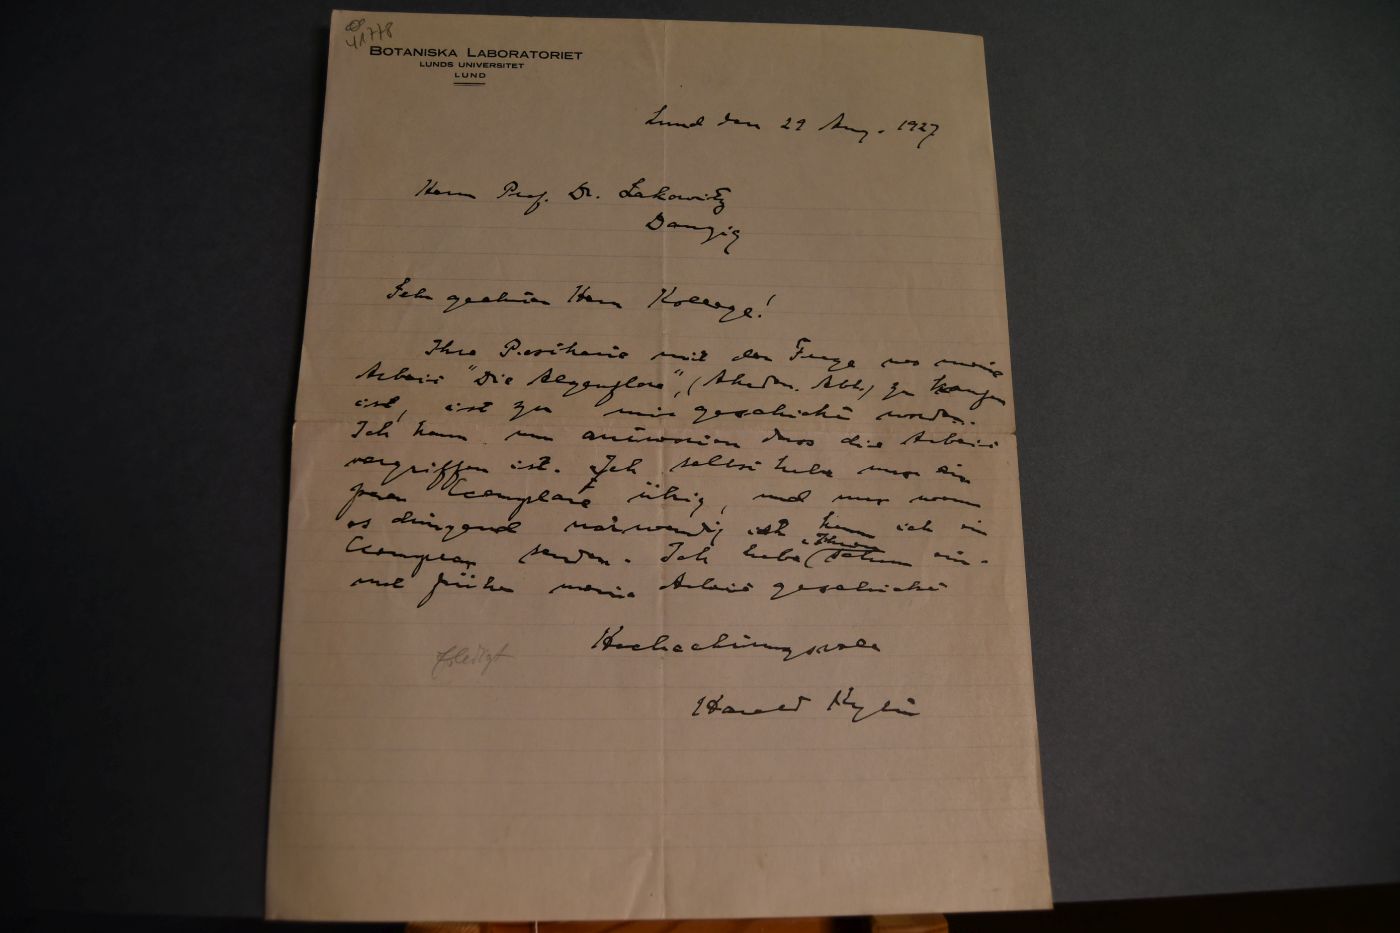 41778
BOTANISKA LABORATORIET
LUNDS UNIVERSITET
LUND
Lund den 29 Aug. 1927
Herrn Prof. Dr. Lakowitz
Danzig
Sehr geehrter Herr Kollege!
Ihre Postkarte mit der Frage wo meine
Arbeit "Die Algenflora", (Akadem. Abh.) zu kaufen
ist, ist zu mir geschickt worden.
Ich kann nur antworten dass die Arbeit
vergriffen ist. Ich selbst habe nur ein
paar Exemplare übrig, und nur wenn
es dringend notwendig ist kann ich ein
Exemplar senden. Ich habe Ihnen schon ein-
mal früher meine Arbeit geschickt
Hochachtungsvoll
Erledigt
Harald Kylin